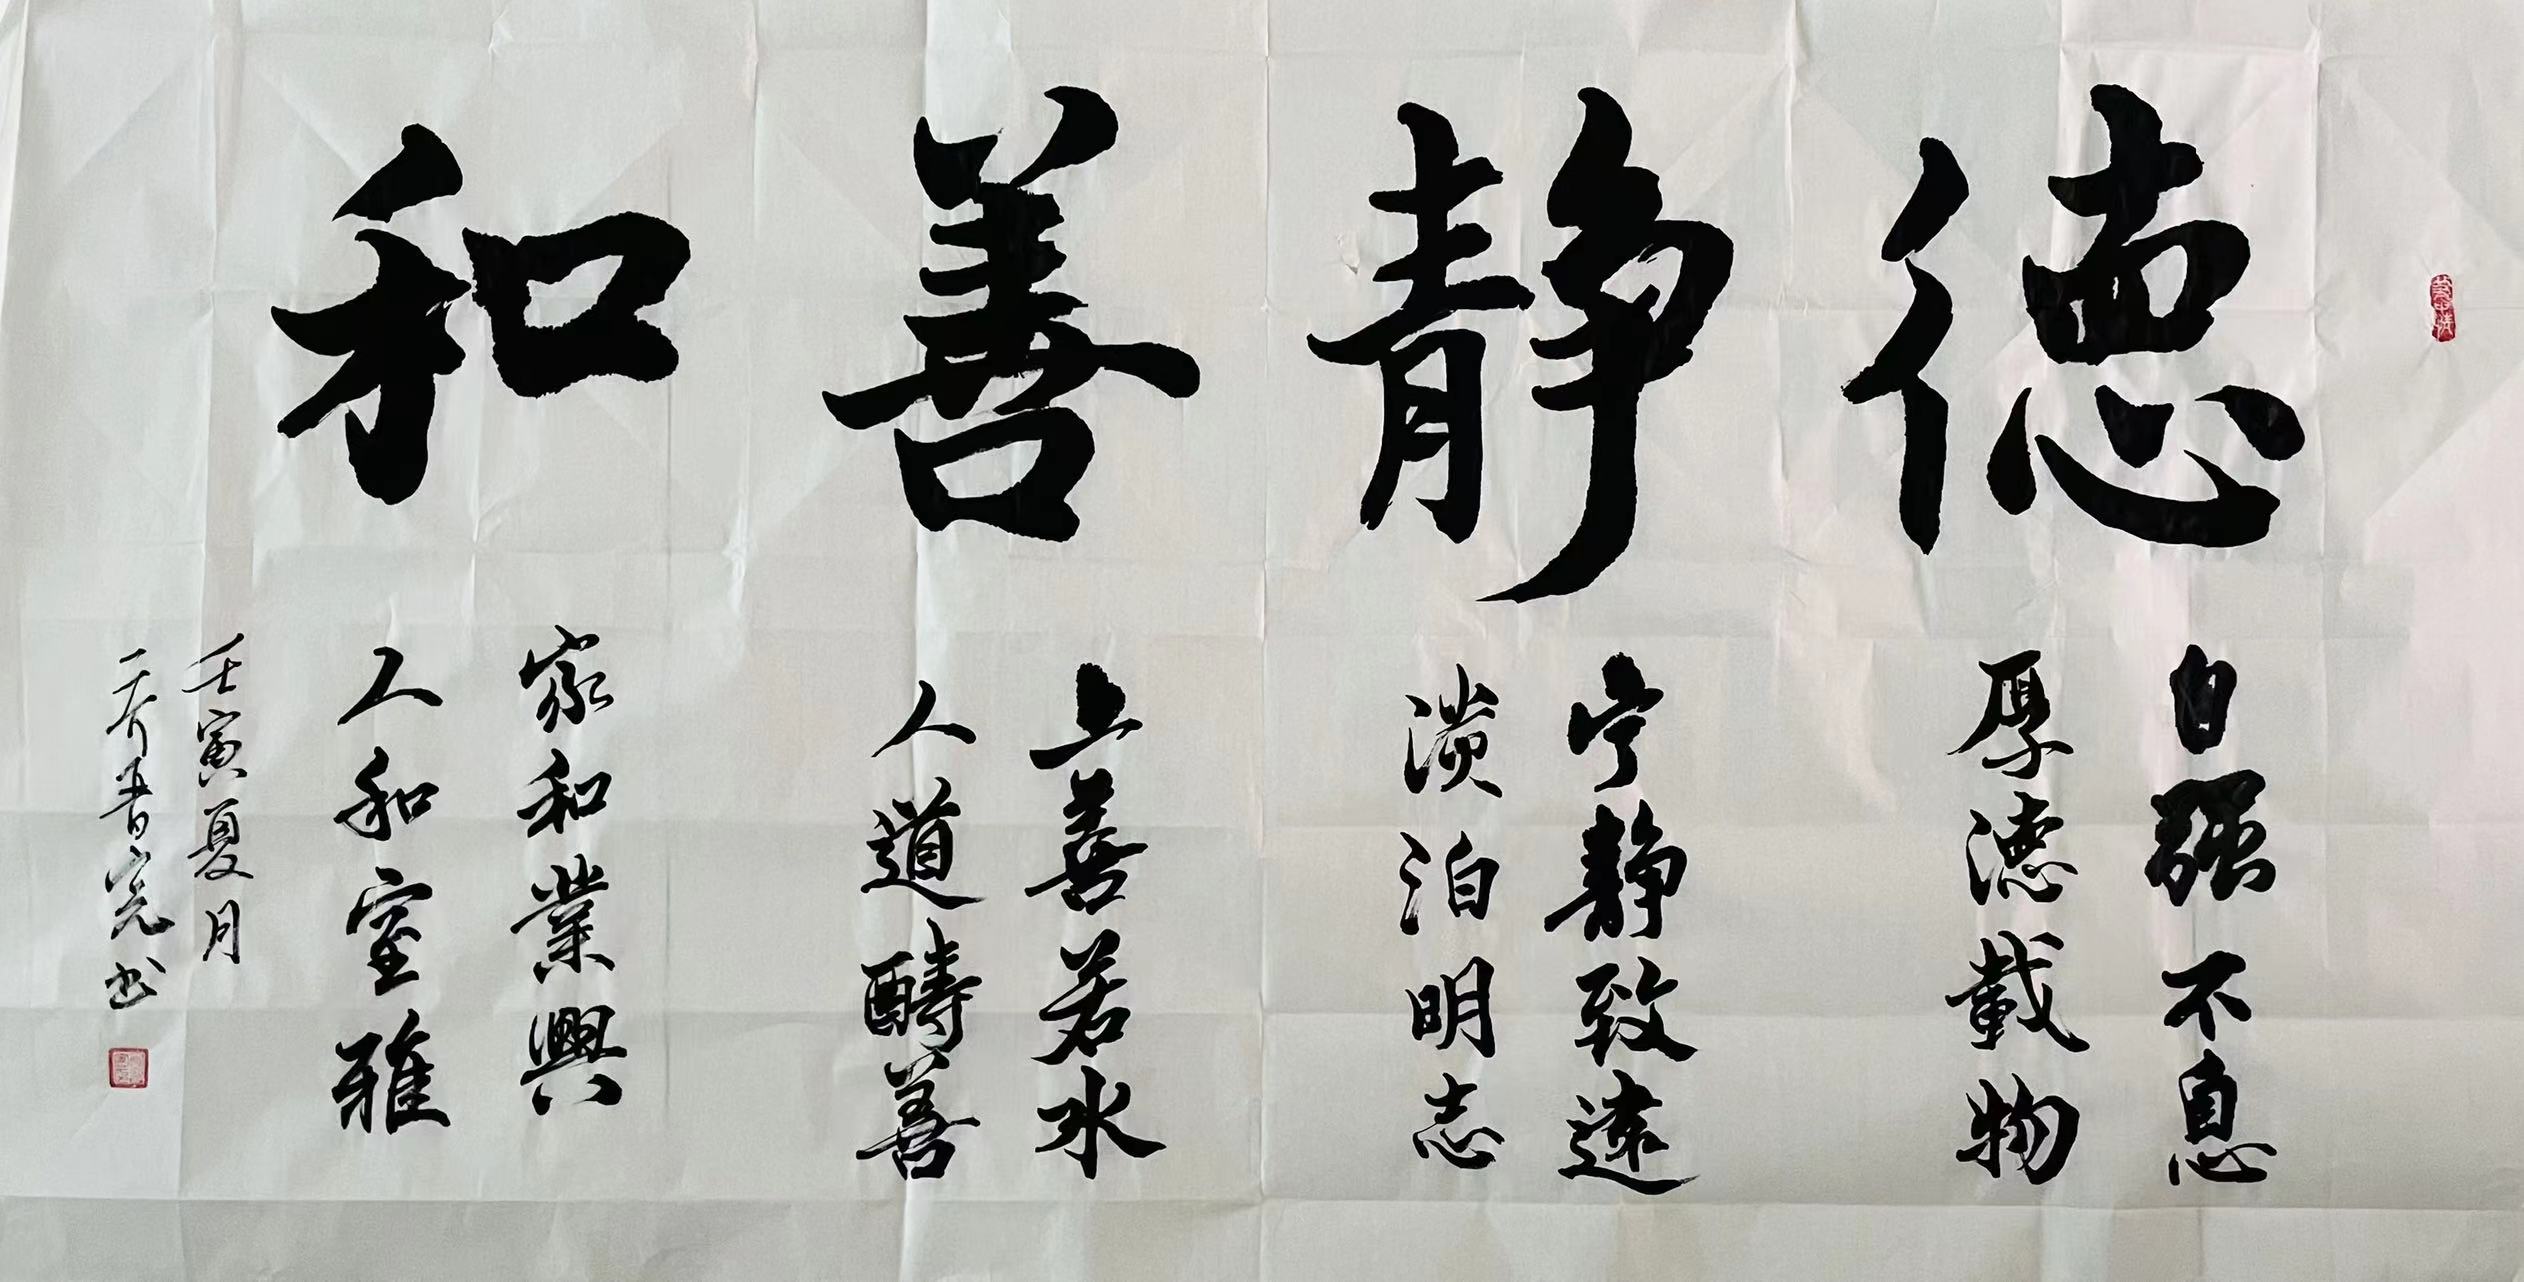 德
静
善
和
自强不息
厚德载物
宁静致远
淡泊明志
上善若水
人道酬善
家和業興
人和室雅
壬寅夏月